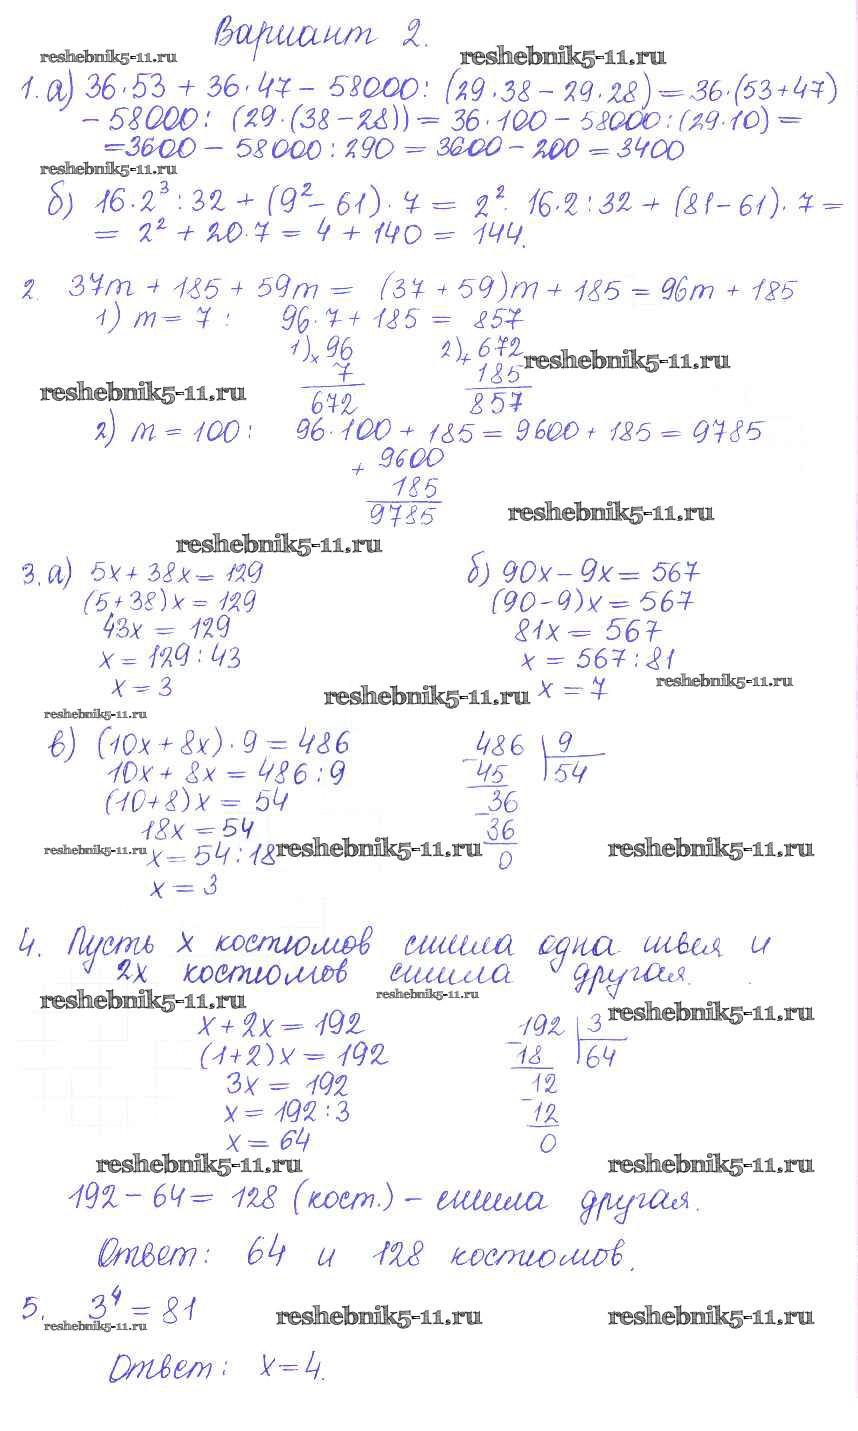 Вариант 2.
reshebnik5-11.ru reshebnik5-11.ru
1. а) 36·53 + 36·47 - 58000 : (29·38 - 29·28) = 36·(53+47)
- 58000 : (29·(38-28)) = 36·100 - 58000 : (29·10) =
= 3600 - 58000 : 290 = 3600 - 200 = 3400
reshebnik5-11.ru
б) 16·2³ : 32 + (9² - 61)·7 = 2²·16·2 : 32 + (81-61)·7 =
= 2² + 20·7 = 4 + 140 = 144.
2. 37m + 185 + 59m = (37 + 59)m + 185 = 96m + 185
1) m = 7 : 96·7 + 185 = 857
1) × 96 2) + 672 reshebnik5-11.ru
7 185
reshebnik5-11.ru 672 857
2) m = 100 : 96·100 + 185 = 9600 + 185 = 9785
+ 9600
185
9785 reshebnik5-11.ru
reshebnik5-11.ru
3. а) 5x + 38x = 129 б) 90x - 9x = 567
(5+38)x = 129 (90-9)x = 567
43x = 129 81x = 567
x = 129 : 43 x = 567 : 81
x = 3 reshebnik5-11.ru x = 7 reshebnik5-11.ru
reshebnik5-11.ru
в) (10x + 8x)·9 = 486 486 | 9
10x + 8x = 486 : 9 - 45 | 54
(10+8)x = 54 - 36
18x = 54 36
reshebnik5-11.ru x = 54 : 18 reshebnik5-11.ru 0 reshebnik5-11.ru
x = 3
4. Пусть x костюмов сшила одна швея и
2x костюмов сшила другая.
reshebnik5-11.ru reshebnik5-11.ru reshebnik5-11.ru
x + 2x = 192 192 | 3
(1+2)x = 192 - 18 | 64
3x = 192 12
x = 192 : 3 - 12
x = 64 0
reshebnik5-11.ru reshebnik5-11.ru
192 - 64 = 128 (кост.) - сшила другая.
Ответ: 64 и 128 костюмов.
5. 3⁴ = 81
reshebnik5-11.ru reshebnik5-11.ru reshebnik5-11.ru
Ответ: x = 4.